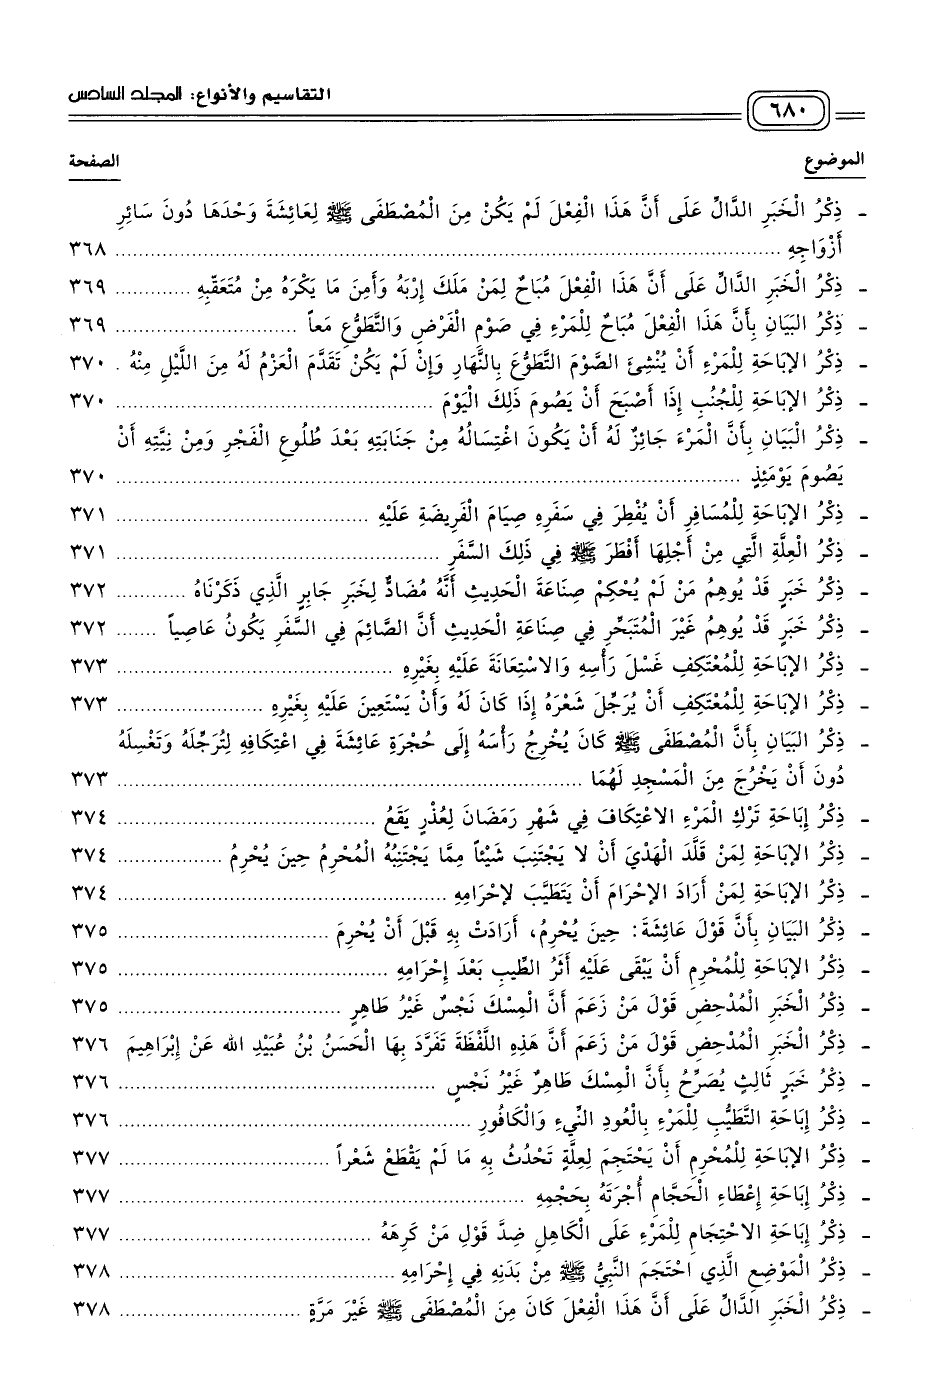 ٦٨٠
التقاسيم والأنواع: المجلد السادس
الموضوع الصفحة
- ذِكْرُ الْخَبَرِ الدَّالِّ عَلَى أَنَّ هَذَا الْفِعْلَ لَمْ يَكُنْ مِنَ الْمُصْطَفَى ﷺ لِعَائِشَةَ وَحْدَهَا دُونَ سَائِرِ
أَزْوَاجِهِ ........ ٣٦٨
- ذِكْرُ الْخَبَرِ الدَّالِّ عَلَى أَنَّ هَذَا الْفِعْلَ مُبَاحٌ لِمَنْ مَلَكَ إِرْبَهُ وَأَمِنَ مَا يَكْرَهُ مِنْ مُتَعَقَّبِهِ ........ ٣٦٩
- ذِكْرُ البَيَانِ بِأَنَّ هَذَا الْفِعْلَ مُبَاحٌ لِلْمَرْءِ فِي صَوْمِ الْفَرْضِ وَالتَّطَوُّعِ مَعاً ........ ٣٦٩
- ذِكْرُ الإِبَاحَةِ لِلْمَرْءِ أَنْ يُنْشِئَ الصَّوْمَ التَّطَوُّعَ بِالنَّهَارِ وَإِنْ لَمْ يَكُنْ تَقَدَّمَ الْعَزْمُ لَهُ مِنَ اللَّيْلِ مِنْهُ . ٣٧٠
- ذِكْرُ الإِبَاحَةِ لِلْجُنُبِ إِذَا أَصْبَحَ أَنْ يَصُومَ ذَلِكَ الْيَوْمَ ........ ٣٧٠
- ذِكْرُ الْبَيَانِ بِأَنَّ الْمَرْءَ جَائِزٌ لَهُ أَنْ يَكُونَ اغْتِسَالُهُ مِنْ جَنَابَتِهِ بَعْدَ طُلُوعِ الْفَجْرِ وَمِنْ نِيَّتِهِ أَنْ
يَصُومَ يَوْمَئِذٍ ........ ٣٧٠
- ذِكْرُ الإِبَاحَةِ لِلْمُسَافِرِ أَنْ يُفْطِرَ فِي سَفَرِهِ صِيَامَ الْفَرِيضَةِ عَلَيْهِ ........ ٣٧١
- ذِكْرُ الْعِلَّةِ الَّتِي مِنْ أَجْلِهَا أَفْطَرَ ﷺ فِي ذَلِكَ السَّفَرِ ........ ٣٧١
- ذِكْرُ خَبَرٍ قَدْ يُوهِمُ مَنْ لَمْ يُحْكِمْ صِنَاعَةَ الْحَدِيثِ أَنَّهُ مُضَادٌّ لِخَبَرِ جَابِرٍ الَّذِي ذَكَرْنَاهُ ........ ٣٧٢
- ذِكْرُ خَبَرٍ قَدْ يُوهِمُ غَيْرَ الْمُتَبَحِّرِ فِي صِنَاعَةِ الْحَدِيثِ أَنَّ الصَّائِمَ فِي السَّفَرِ يَكُونُ عَاصِياً ....... ٣٧٢
- ذِكْرُ الإِبَاحَةِ لِلْمُعْتَكِفِ غَسْلَ رَأْسِهِ وَالاسْتِعَانَةَ عَلَيْهِ بِغَيْرِهِ ........ ٣٧٣
- ذِكْرُ الإِبَاحَةِ لِلْمُعْتَكِفِ أَنْ يُرَجِّلَ شَعْرَهُ إِذَا كَانَ لَهُ وَأَنْ يَسْتَعِينَ عَلَيْهِ بِغَيْرِهِ ........ ٣٧٣
- ذِكْرُ البَيَانِ بِأَنَّ الْمُصْطَفَى ﷺ كَانَ يُخْرِجُ رَأْسَهُ إِلَى حُجْرَةِ عَائِشَةَ فِي اعْتِكَافِهِ لِتُرَجِّلَهُ وَتَغْسِلَهُ
دُونَ أَنْ يَخْرُجَ مِنَ الْمَسْجِدِ لَهُمَا ........ ٣٧٣
- ذِكْرُ إِبَاحَةِ تَرْكِ الْمَرْءِ الاعْتِكَافَ فِي شَهْرِ رَمَضَانَ لِعُذْرٍ يَقَعُ ........ ٣٧٤
- ذِكْرُ الإِبَاحَةِ لِمَنْ قَلَّدَ الْهَدْيَ أَنْ لا يَجْتَنِبَ شَيْئاً مِمَّا يَجْتَنِبُهُ الْمُحْرِمُ حِينَ يُحْرِمُ ........ ٣٧٤
- ذِكْرُ الإِبَاحَةِ لِمَنْ أَرَادَ الإِحْرَامَ أَنْ يَتَطَيَّبَ لإِحْرَامِهِ ........ ٣٧٤
- ذِكْرُ البَيَانِ بِأَنَّ قَوْلَ عَائِشَةَ: حِينَ يُحْرِمُ، أَرَادَتْ بِهِ قَبْلَ أَنْ يُحْرِمَ ........ ٣٧٥
- ذِكْرُ الإِبَاحَةِ لِلْمُحْرِمِ أَنْ يَبْقَى عَلَيْهِ أَثَرُ الطِّيبِ بَعْدَ إِحْرَامِهِ ........ ٣٧٥
- ذِكْرُ الْخَبَرِ الْمُدْحِضِ قَوْلَ مَنْ زَعَمَ أَنَّ الْمِسْكَ نَجْسٌ غَيْرُ طَاهِرٍ ........ ٣٧٥
- ذِكْرُ الْخَبَرِ الْمُدْحِضِ قَوْلَ مَنْ زَعَمَ أَنَّ هَذِهِ اللَّفْظَةَ تَفَرَّدَ بِهَا الْحَسَنُ بْنُ عُبَيْدِ الله عَنْ إِبْرَاهِيمَ ٣٧٦
- ذِكْرُ خَبَرٍ ثَالِثٍ يُصَرِّحُ بِأَنَّ الْمِسْكَ طَاهِرٌ غَيْرُ نَجْسٍ ........ ٣٧٦
- ذِكْرُ إِبَاحَةِ التَّطَيُّبِ لِلْمَرْءِ بِالْعُودِ النِّيءِ وَالْكَافُورِ ........ ٣٧٦
- ذِكْرُ الإِبَاحَةِ لِلْمُحْرِمِ أَنْ يَحْتَجِمَ لِعِلَّةٍ تَحْدُثُ بِهِ مَا لَمْ يَقْطَعْ شَعْراً ........ ٣٧٧
- ذِكْرُ إِبَاحَةِ إِعْطَاءِ الْحَجَّامِ أُجْرَتَهُ بِحَجْمِهِ ........ ٣٧٧
- ذِكْرُ إِبَاحَةِ الاحْتِجَامِ لِلْمَرْءِ عَلَى الْكَاهِلِ ضِدَّ قَوْلِ مَنْ كَرِهَهُ ........ ٣٧٧
- ذِكْرُ الْمَوْضِعِ الَّذِي احْتَجَمَ النَّبِيُّ ﷺ مِنْ بَدَنِهِ فِي إِحْرَامِهِ ........ ٣٧٨
- ذِكْرُ الْخَبَرِ الدَّالِّ عَلَى أَنَّ هَذَا الْفِعْلَ كَانَ مِنَ الْمُصْطَفَى ﷺ غَيْرَ مَرَّةٍ ........ ٣٧٨